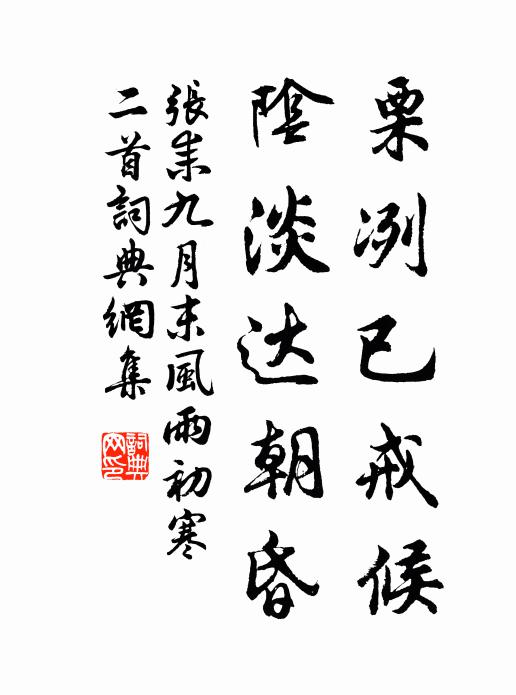 栗冽已戒候
陰淡达朝昏
張耒九月末風雨初寒
二首詞典網集
詞典网印